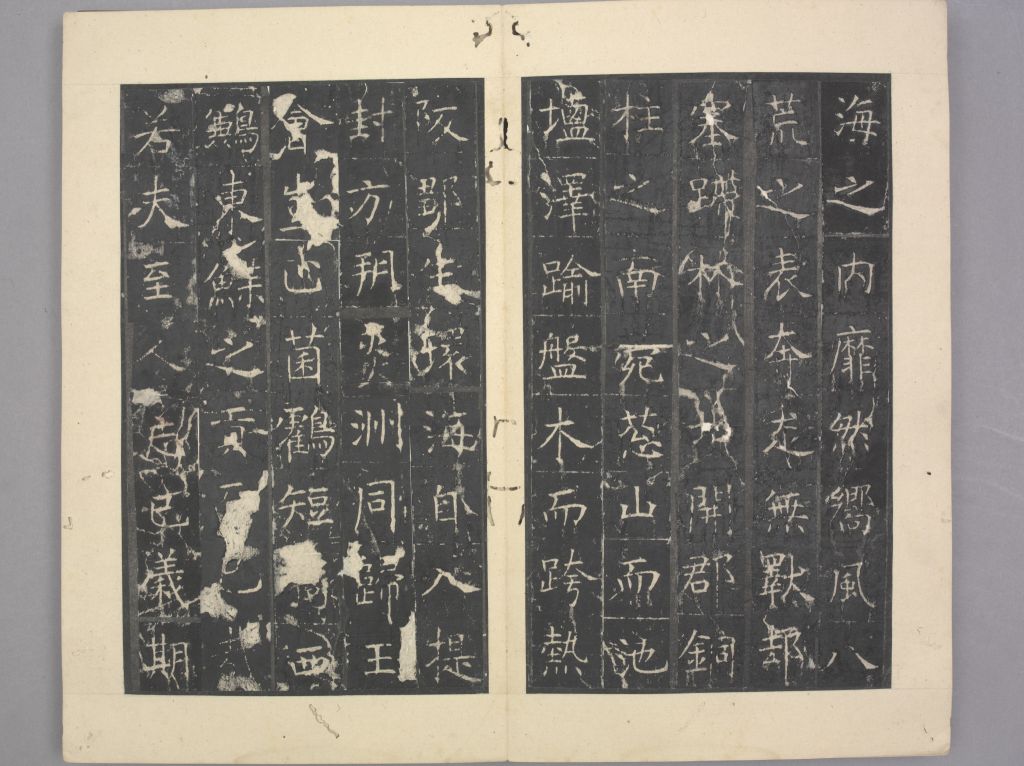 海之内靡然嚮風八
荒之表奔走無斁
塞蹛林之地開郡銅
柱之南苑葱山而池
塩澤踰盤木而跨熱
阪郡生環海自入提
封方明炎洲同歸王
會山菌鶴短狗西
鶼東鰈之貢
若夫至人起忘儀期